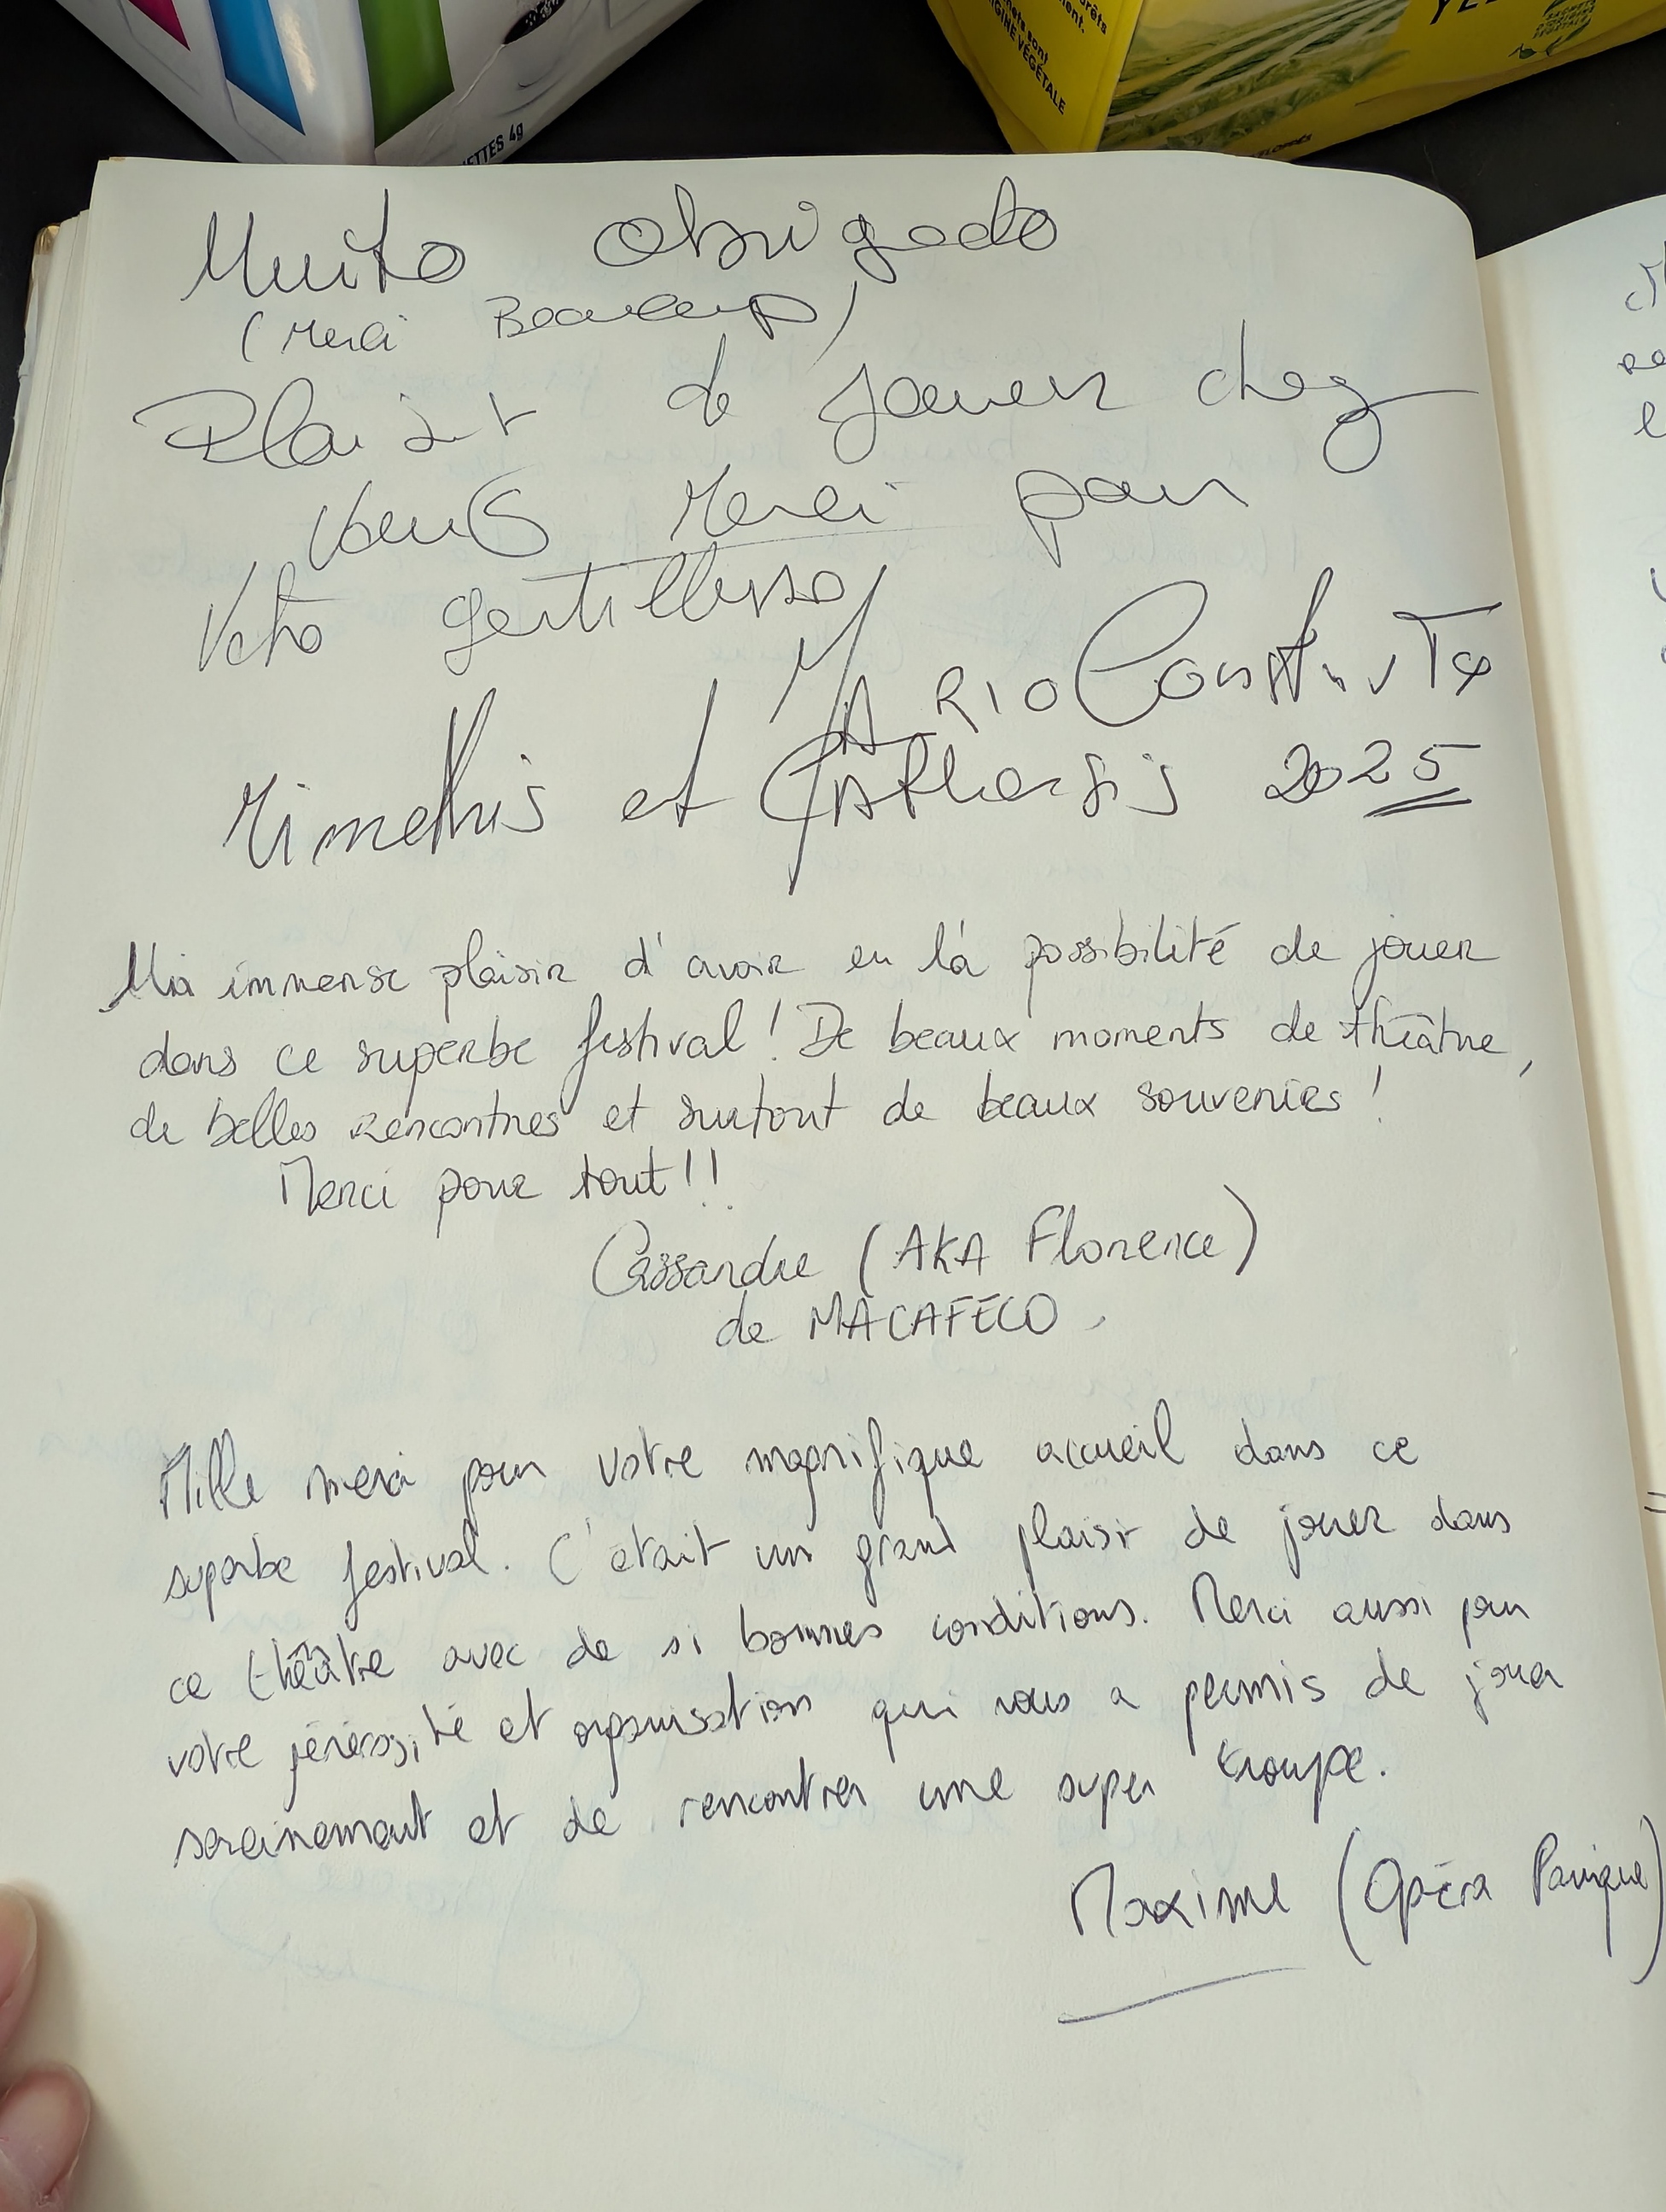 ETTES 4g
nets sont
ORIGINE VÉGÉTALE
Muito Obrigado
(Merci Beaucoup)
Plaisir de Jouer chez
Vous Merci pour
Votre gentillesse
MARIO
Mimethis et CAtharsis 2025
immense plaisir d'avoir eu la possibilité de jouer
dans ce superbe festival ! De beaux moments de théâtre,
de belles rencontres et surtout de beaux souvenirs !
Merci pour tout !!
Cassandre (AKA Florence)
de MACAFÉCO
Mille merci pour votre magnifique accueil dans ce
superbe festival. C'était un grand plaisir de jouer dans
ce théâtre avec de si bonnes conditions. Merci aussi pour
votre jénérosité et organisation qui nous a permis de jouer
sereinement et de rencontrer une super troupe.
Maxime (Opéra Panique)